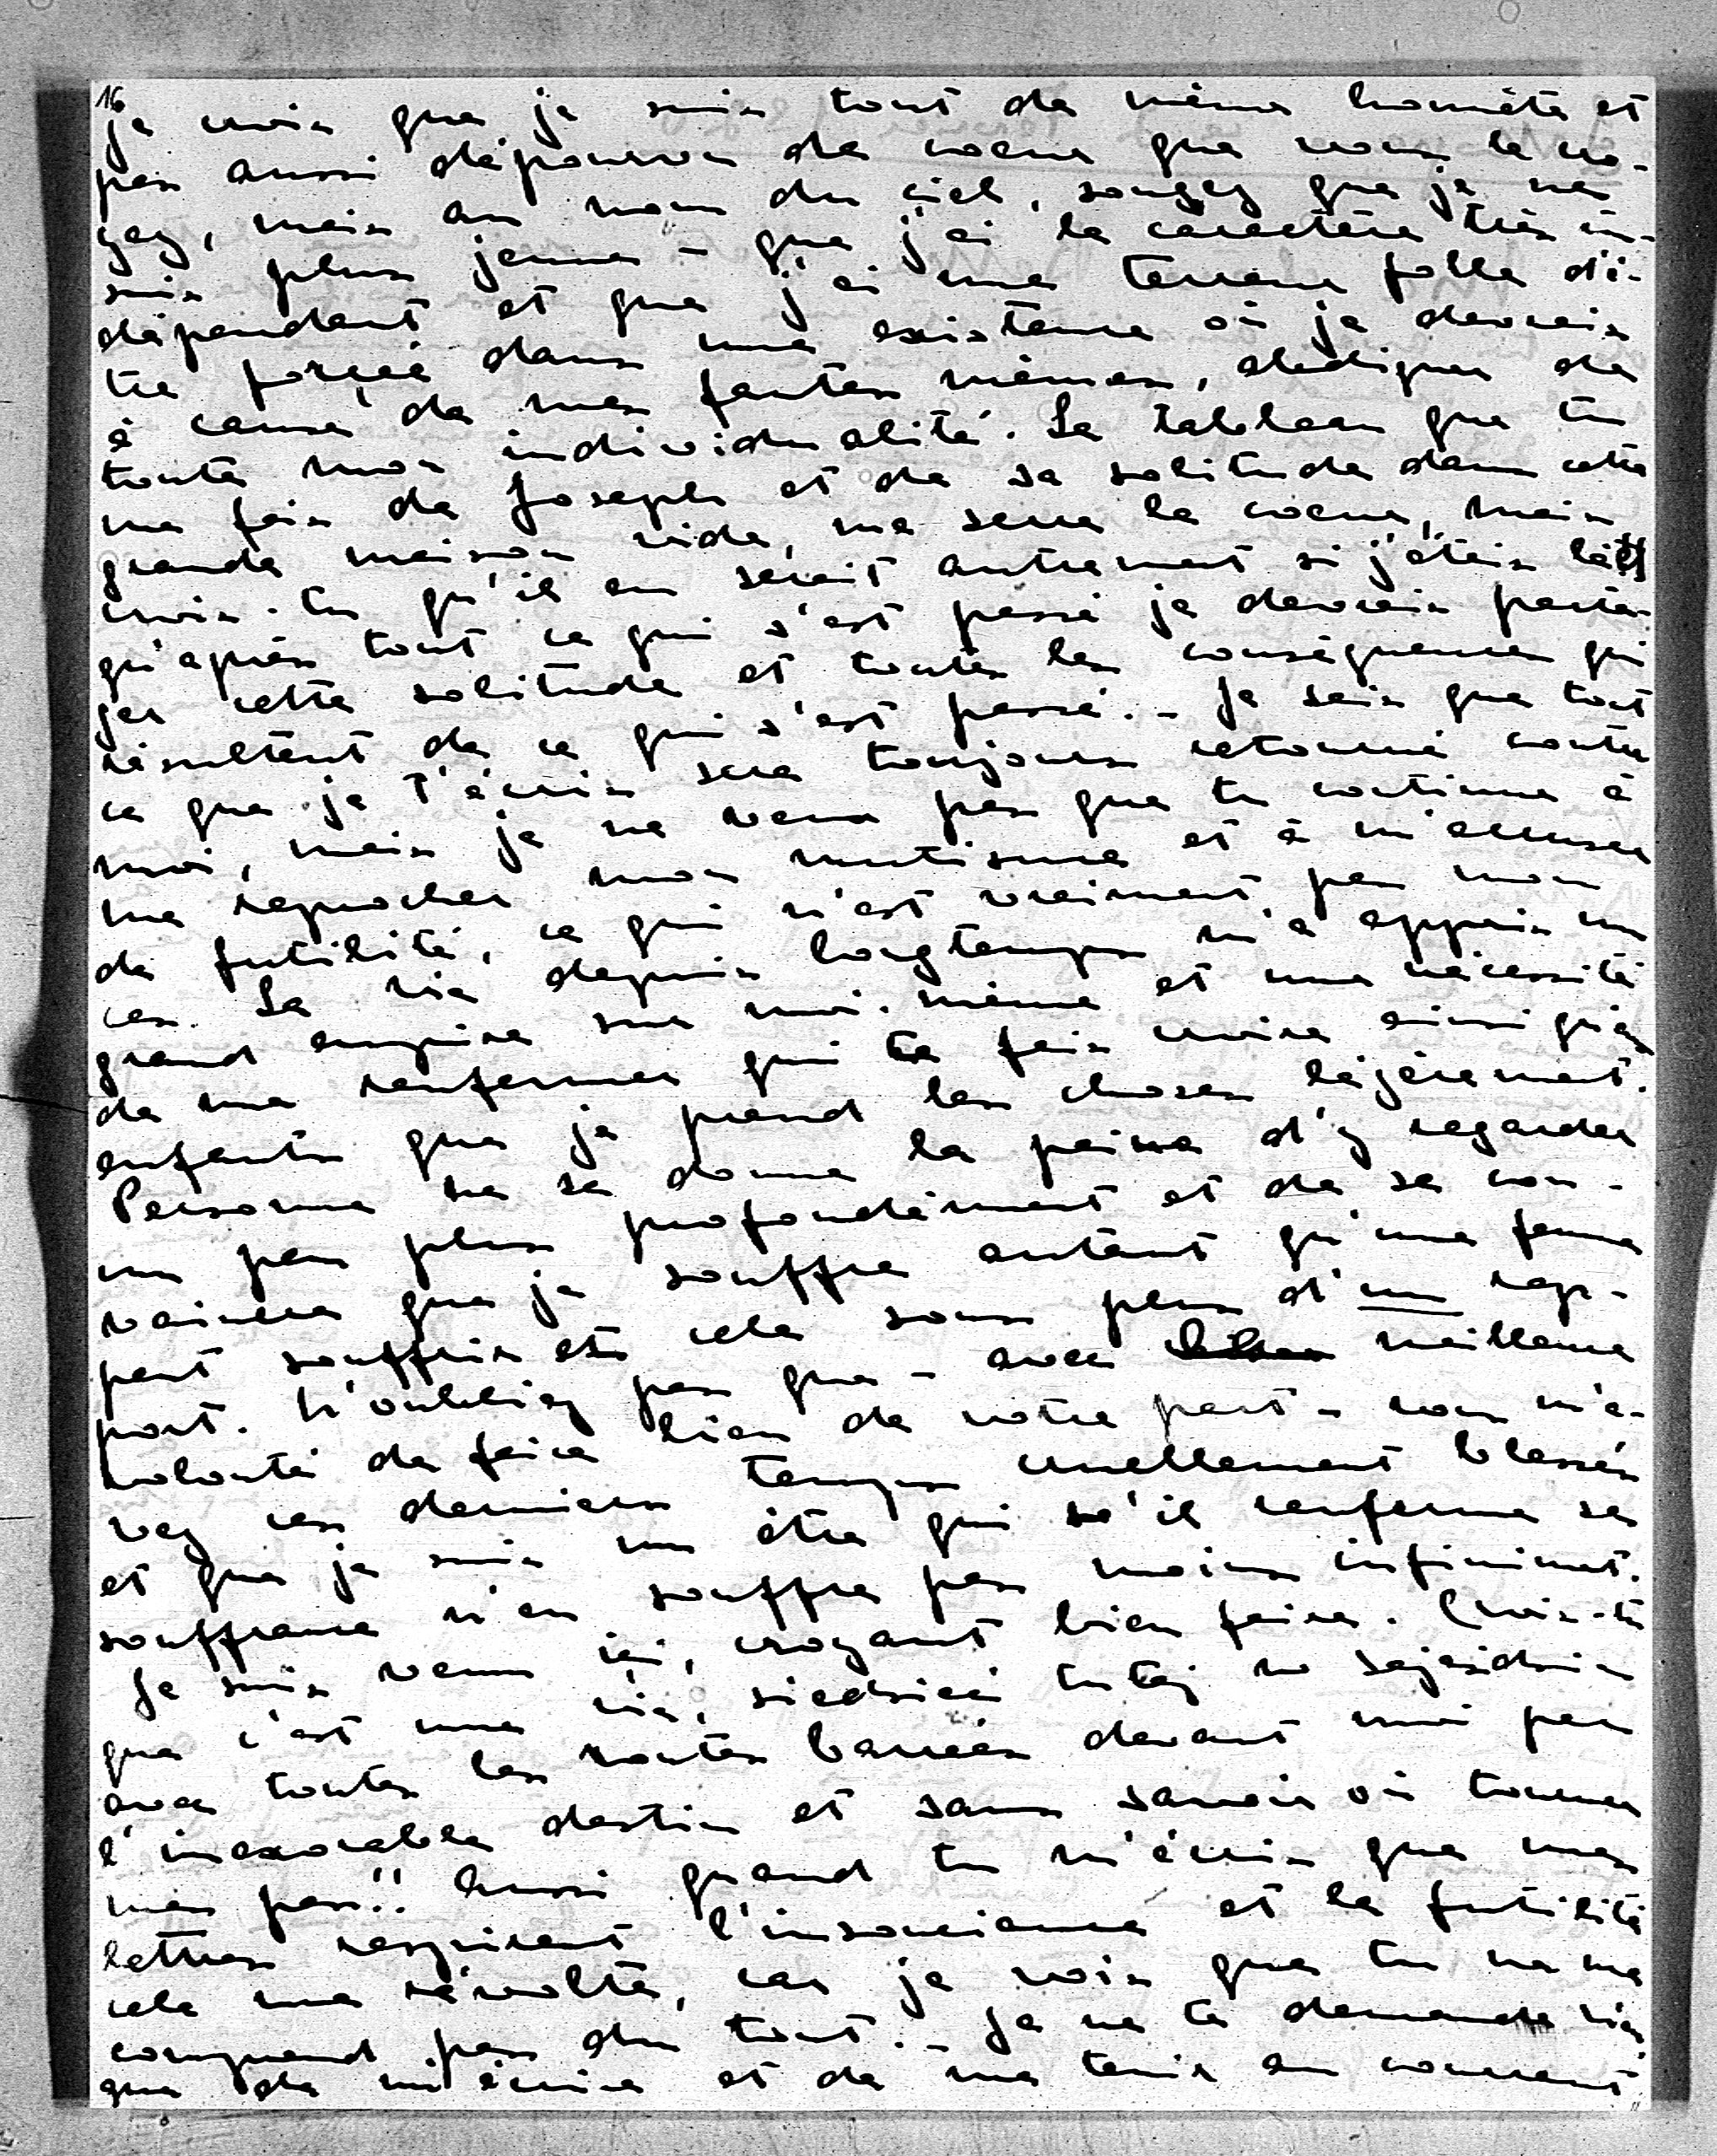 16
je crois que je suis tout de même honnête et
pas aussi dépourvu de coeur que vous le cro-
yez, mais au nom du ciel, songez que je ne
suis plus jeune – que j'ai le caractère très in-
dépendant et que j'ai une terreur folle d'ê-
tre forçée dans une existence où je devrais
à cause de mes fautes mêmes, abdiquer de
toute mon individualité. Le tableau que tu
me fais de Joseph et de sa solitude dans cette
grande maison vide, me serre le coeur, mais
crois-tu qu'il en serait autrement si j'étais là et
qu'après tout ce qui s'est passé je devrais parta-
ger cette solitude et toutes les conséquences qui
résultent de ce qui s'est passé. – Je sais que tout
ce que je t'écris sera toujours retourné contre
moi, mais je ne veux pas que tu continue à
me reprocher mon mutisme et à m'accuser
de futilité, ce qui n'est vraiment pas mon
cas. La vie depuis longtemps m'a appris un
grand empire sur moi-même et une nécessité
de me renfermer qui te fais croire ainsi qu'aux
enfants que je prend les choses légèrement.
Personne ne se donne la peine d'y regarder
un peu plus profondément et de se con-
vaincre que je souffre autant qu'une femme
peut souffrir et cela sous plus d'un rap-
port. N'oubliez pas que – avec meilleure
volonté de faire bien de votre part – vous m'a-
vez ces derniers temps cruellement blessés
et que je suis un être qui s'il renferme sa
souffrance n'en souffre pas moins infiniment.
Je suis venu ici, croyant bien faire. Crois-tu
que c'est une vie, siedzieć tutaj w Sejeżdzie
avec toutes les routes barrées devant moi par
l'inexorable destin et sans savoir où tourner
mes pas!! Aussi quand tu m'écris que mes
lettres respirent l'insouciance et la futilité
cela me révolte, car je vois que tu ne me
comprend pas du tout. – Je ne te demande rien
que de m'écrire et de me tenir au courant